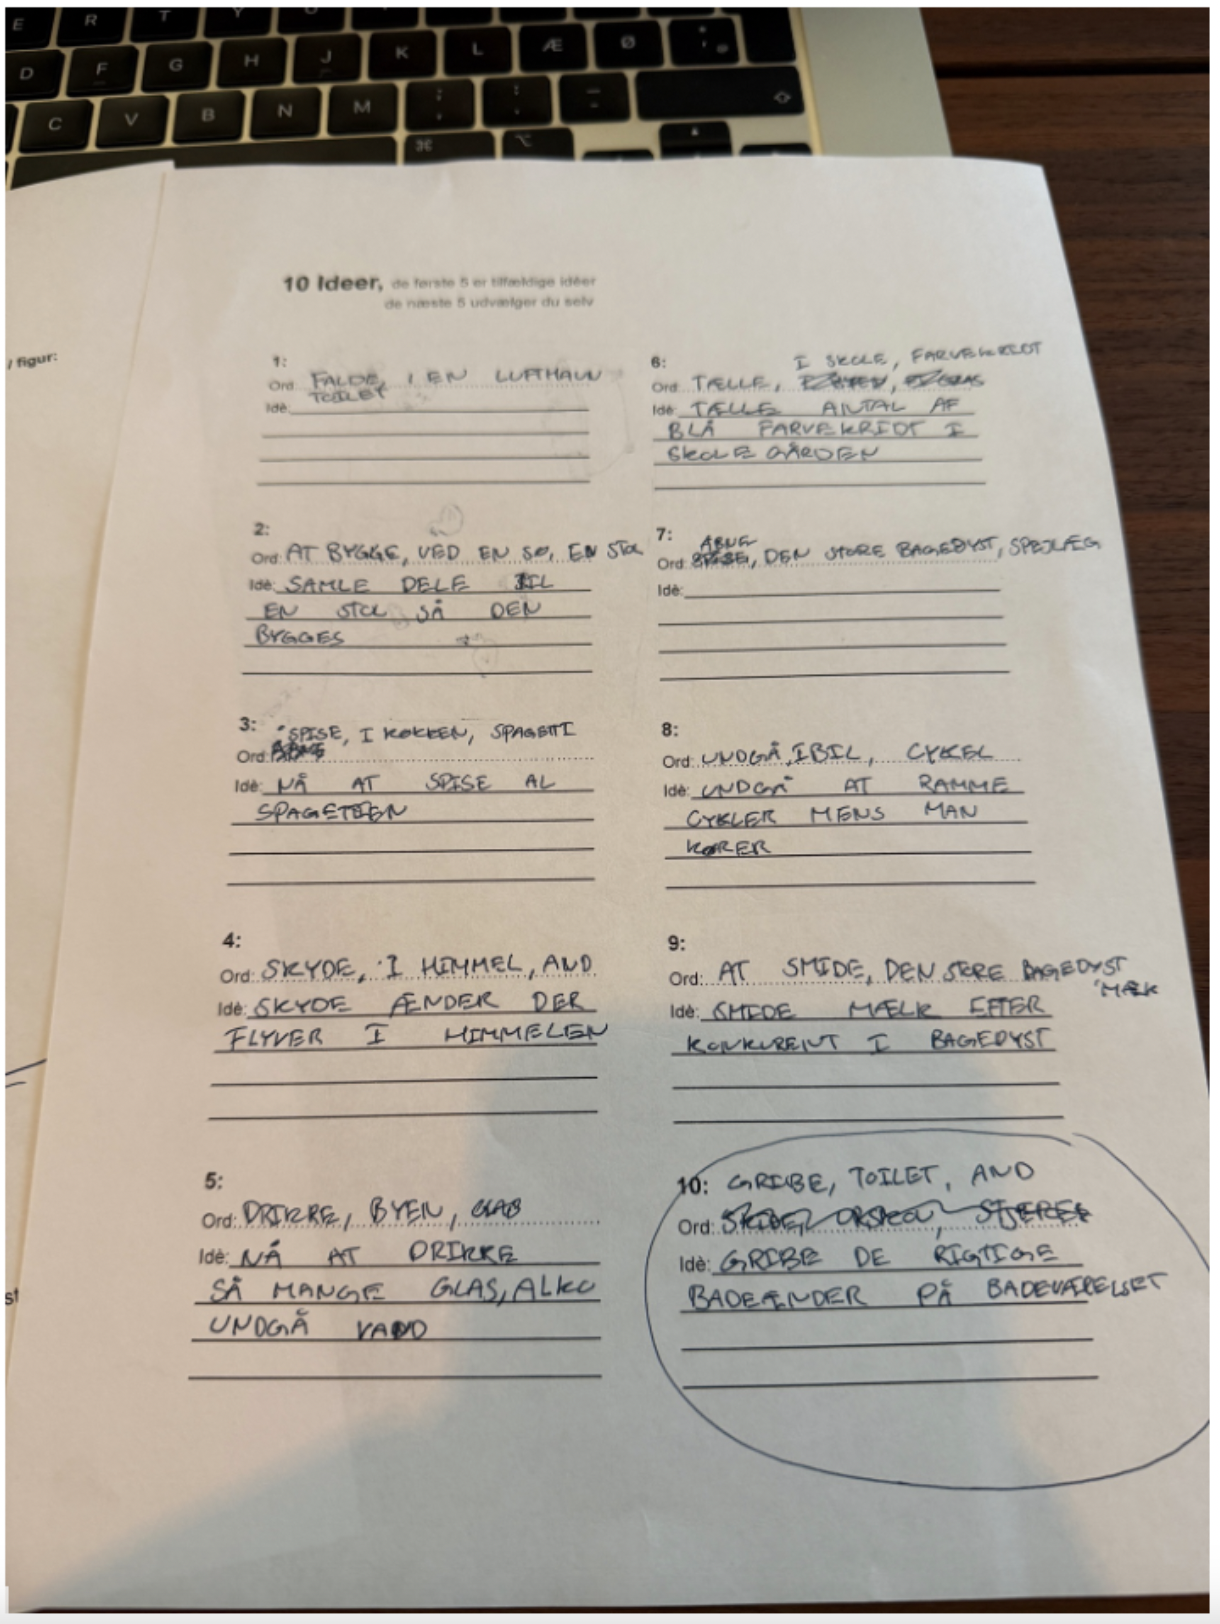 E R T Y
D F G H J K L Æ Ø
C V B N M ; : -
⌘ ⌥
/ figur:
st
10 Ideer, de første 5 er tilfældige idéer
de næste 5 udvælger du selv
1:
Ord: FALDE, I EN LUFTHAVN
TOILET
Idè:
2:
Ord: AT BYGGE, VED EN SØ, EN STOL
Idè: SAMLE DELE TIL
EN STOL SÅ DEN
BYGGES
3: SPISE, I KØKKEN, SPAGETTI
Ord:
Idè: NÅ AT SPISE AL
SPAGETTIEN
4:
Ord: SKYDE, I HIMMEL, AND
Idè: SKYDE ÆNDER DER
FLYVER I HIMMELEN
5:
Ord: DRIKKE, BYEN, GLAS
Idè: NÅ AT DRIKKE
SÅ MANGE GLAS, ALKO
UNDGÅ VAND
6: I SKOLE, FARVEKRIDT
Ord: TÆLLE,
Idè: TÆLLE ANTAL AF
BLÅ FARVEKRIDT I
SKOLEGÅRDEN
7: ÅBNE
Ord: SPISE, DEN STORE BAGEDYST, SPEJLÆG
Idè:
8:
Ord: UNDGÅ, I BIL, CYKEL
Idè: UNDGÅ AT RAMME
CYKLER MENS MAN
KØRER
9:
Ord: AT SMIDE, DEN STORE BAGEDYST
MÆLK
Idè: SMIDE MÆLK EFTER
KONKURENT I BAGEDYST
10: GRIBE, TOILET, AND
Ord:
Idè: GRIBE DE RIGTIGE
BADEÆNDER PÅ BADEVÆRELSET